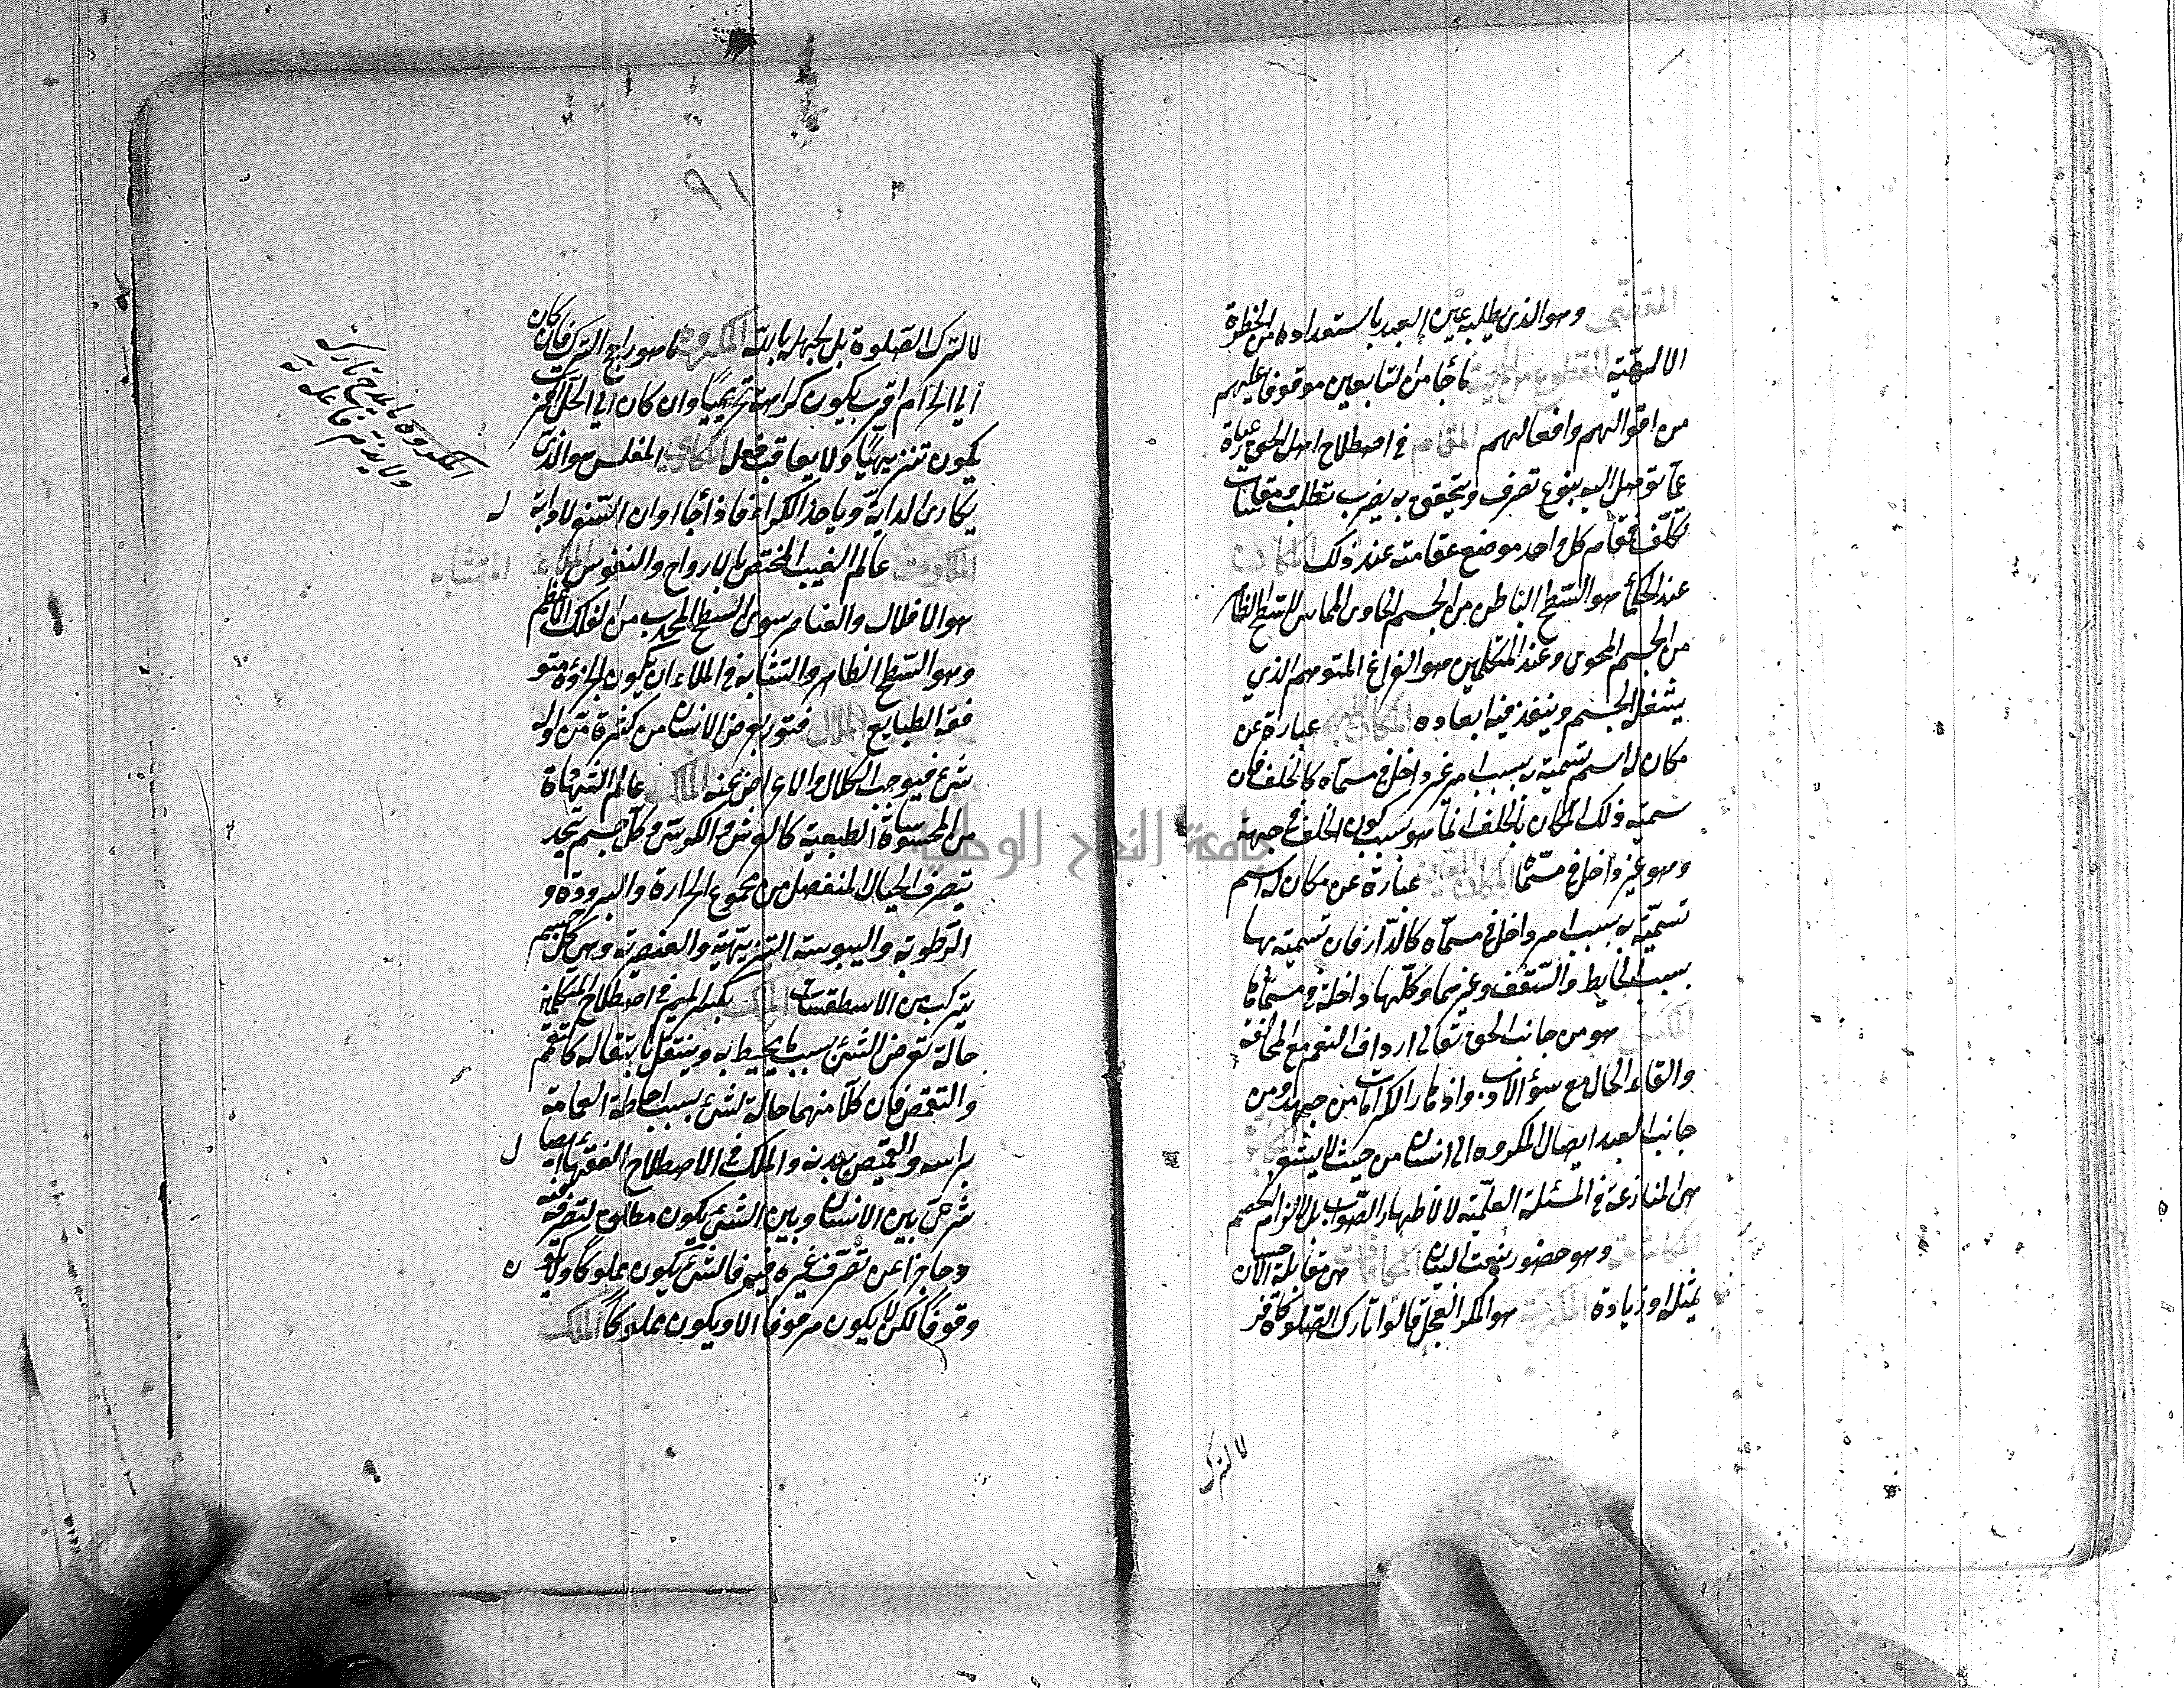 المقتضى وهو الذي يطلبه عين العبد باستعداده من الحضرة
الالهية المقطوع من الحديث ما جا من التابعين موقوفا عليهم
من اقوالهم وافعالهم المقام في اصطلاح اهل الحق عبارة
عما توصل اليه بنوع تصرف ويتحقق به بضرب تطلب ومقاساة
تكلف فمقام كل واحد موضع عقامته عند ذلك المكان
عند الحكما هو السطح الباطن من الجسم الحاوى المماس للسطح الظاهر
من الجسم المحوى وعند المتكلمين هو الفراغ المتوهم الذي
يشغل الجسم وينفذ فيه ابعاده المكان المبهم عبارة عن
مكان له اسم تسميته به بسبب امر غير داخل في مسماه كالخلف فان
تسمية ذلك المكان بالخلف انما هو بسبب كون الخلف في جهة
وهو غير داخل في مسماه المكان المعين عبارة عن مكان له اسم
تسميته به بسبب امر داخل في مسماه كالدار فان تسميته بها
بسبب الحايط والسقف وغيرهما وكلها داخلة في مسماها
المكر هو من جانب الحق تعالى ارداف النعم مع المخالفة
والقاء الحال مع سوء الادب واذكار الكرامات من جهد ومن
جانب العبد ايصال المكروه الى انسان من حيث لا يشعر
هى المنازعة في المسئلة العلمية لا لاظهار الصواب بل لالزام الخصم
المكاشفة وهو حضور بنعت البيان المكافاة هى مقابلة الاحسان
بمثله او زيادة المكرمية هو المكر العجل قالوا تارك الصلوة كافر
لا لترك
٩١
لا لترك الصلوة بل لجهله بالله المكروه ما هو راجح الترك فان كان
الى الحرام اقرب يكون كراهته تحريميا وان كان الى الحل اقرب
يكون تنزيهيا ولا يعاقب فعله المكارى المفلس هو الذى
يكارى الدابة وياخذ الكراء فاذا جاء اوان السفر لا دابة له
الملكوت عالم الغيب المختص بالارواح والنفوس الملاء المتشابه
هو الافلاك والعناصر سوى السطح المحدب من الفلك الاعظم
وهو السطح الظاهر والتشابه في الملاء ان يكون اجزؤه متو
فقة الطبايع الملال فتور يعرض الانسان من كثرة مزاولة
شئ فيوجب الكلال والاعراض عنه الملك عالم الشهادة
من المحسوساة الطبعية كالعرش والكرسى وكل جسم يتحد
بتصرف الخيال المنفصل من مجموع الحرارة والبرودة و
الرطوبة واليبوسة التنزيهية والعنصرية وهى كل جسم
يتركب من الاسطقسات الملك بكسر الميم في اصطلاح المتكلمين
حالة تعرض الشئ بسبب ما يحيط به وينتقل بانتقاله كالتعمم
والتقمص فان كلا منهما حالة لشئ بسبب احاطة العمامة
براسه والقميص ببدنه والملك في الاصطلاح الفقهاء اتصال
شرعى بين الانسان وبين الشئ يكون مطلوع لتصرفه فيه
وحاجزا عن تصرف غيره فيه فالشئ يكون مملوكا ولا يكون
وقوفا لكن لا يكون مرموفا الا ويكون مملوكا الملك
المكروه ما يمدح تاركه
ولا يذم فاعله